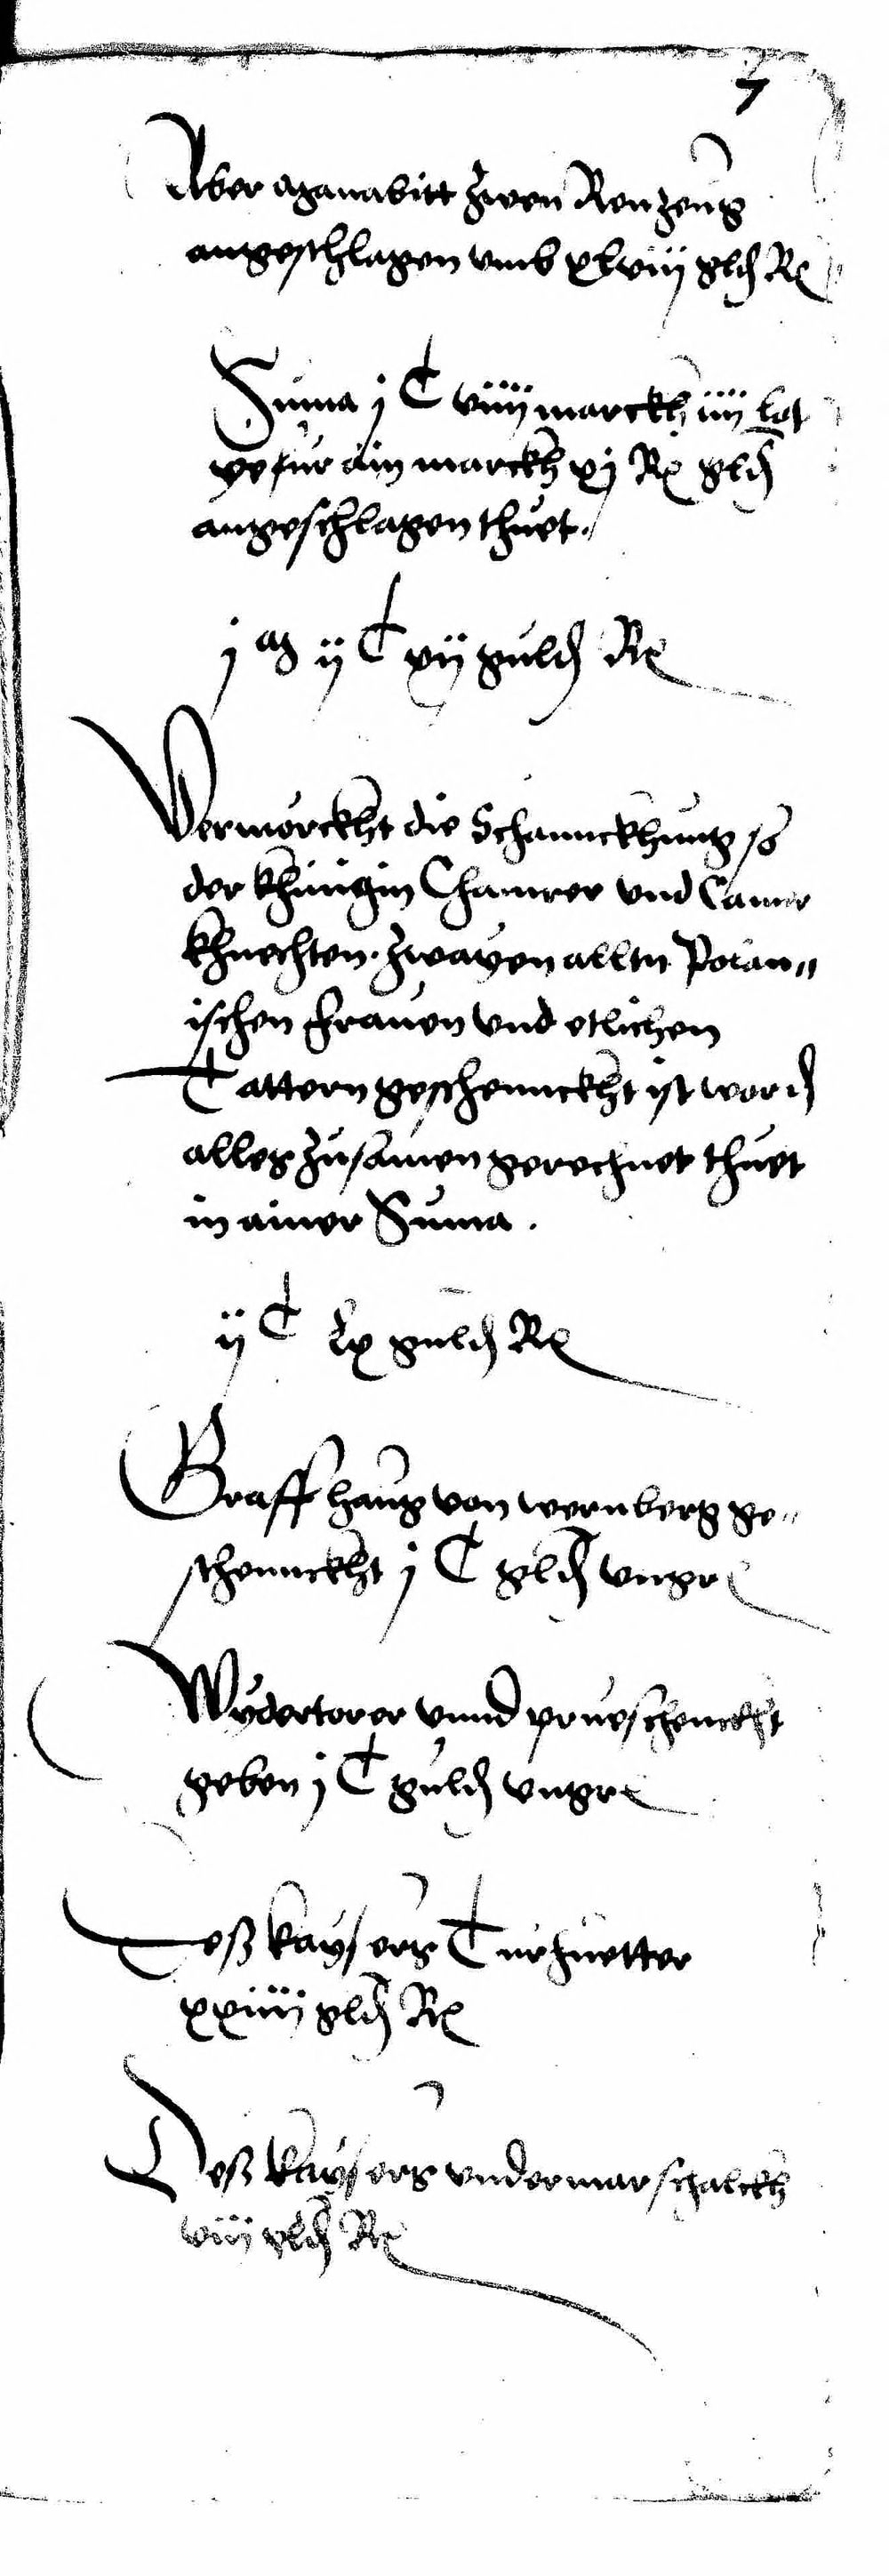 7
Aber aganabitt zwen Renzeug
angeschlagen vmb xlviij gld Rx
Suma j C viiij marckh iiij lot
ye fur ain marckh xj Rx gld
angeschlagen thuet.
j M ij C xij guld Rx
Vermerckht die Schannckhung so
der khunigin Chamrer vnd Camer
khnechten. zwayen allten Polan„
ischen frauen vnd etlichen
Tattern geschennckht ist word
alles zusamen gerechnet thuet
in ainer Suma .
ij C Lx guld Rx
Graff haug von wernberg ge„
schennckht j C gld vngr
Wydertorer vnnd prueschennckht
geben j C guld vngr
Deß kaysers Turhuetter
xxiiij gld Rx
Deß kaysers vndermarschalckh
viij gld Rx